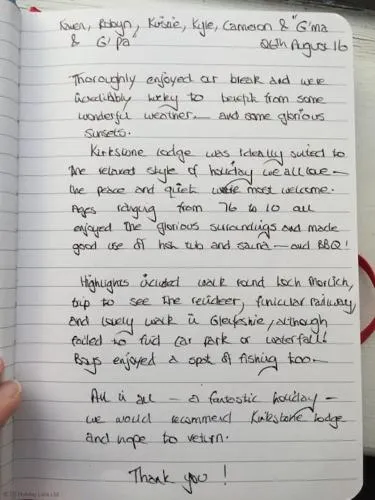 Karen, Robyn, Kirstie, Kyle, Cameron & "G'ma
& G'pa" 26th August 16
Thoroughly enjoyed our break and were
incredibly lucky to benefit from some
wonderful weather — and some glorious
sunsets.
Kirkstone lodge was ideally suited to
the relaxed style of holiday we all love —
the peace and quiet were most welcome.
Ages ranging from 76 to 10 all
enjoyed the glorious surroundings and made
good use of hot tub and sauna — and BBQ!
Highlights included walk round Loch Morlich,
trip to see the reindeer, funicular railway
and lovely walk in Glenfeshie, although
failed to find car park or waterfall!
Boys enjoyed a spot of fishing too —
All in all — a fantastic holiday —
we would recommend Kirkstone lodge
and hope to return.
Thank you!